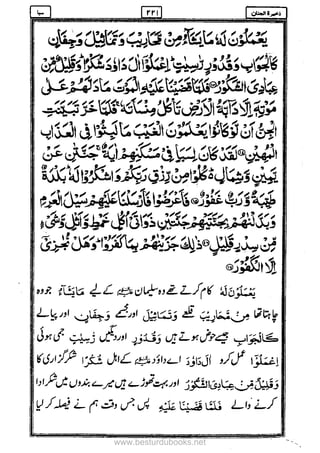 ذخیرۃ الجنان ۲۳۱ سبا
يَعْمَلُوْنَ لَهٗ مَا يَشَآءُ مِنْ مَّحَارِيْبَ وَتَمَاثِيْلَ وَجِفَانٍ
كَالْجَوَابِ وَقُدُوْرٍ رّٰسِيٰتٍ ؕ اِعْمَلُوْٓا اٰلَ دَاوٗدَ شُكْرًا ؕ وَقَلِيْلٌ مِّنْ
عِبَادِيَ الشَّكُوْرُ فَلَمَّا قَضَيْنَا عَلَيْهِ الْمَوْتَ مَا دَلَّهُمْ عَلٰى
مَوْتِهٖٓ اِلَّا دَآبَّةُ الْاَرْضِ تَاْكُلُ مِنْسَاَتَهٗ ۚ فَلَمَّا خَرَّ تَبَيَّنَتِ
الْجِنُّ اَنْ لَّوْ كَانُوْا يَعْلَمُوْنَ الْغَيْبَ مَا لَبِثُوْا فِي الْعَذَابِ
الْمُهِيْنِ لَقَدْ كَانَ لِسَبَاٍ فِيْ مَسْكَنِهِمْ اٰيَةٌ ۚ جَنَّتٰنِ عَنْ
يَّمِيْنٍ وَّشِمَالٍ ؕ كُلُوْا مِنْ رِّزْقِ رَبِّكُمْ وَاشْكُرُوْا لَهٗ ؕ بَلْدَةٌ
طَيِّبَةٌ وَّرَبٌّ غَفُوْرٌ فَاَعْرَضُوْا فَاَرْسَلْنَا عَلَيْهِمْ سَيْلَ الْعَرِمِ
وَبَدَّلْنٰهُمْ بِجَنَّتَيْهِمْ جَنَّتَيْنِ ذَوَاتَيْ اُكُلٍ خَمْطٍ وَّاَثْلٍ وَّشَيْءٍ
مِّنْ سِدْرٍ قَلِيْلٍ ذٰلِكَ جَزَيْنٰهُمْ بِمَا كَفَرُوْا ؕ وَهَلْ نُجٰزِيْٓ
اِلَّا الْكَفُوْرَ
يَعْمَلُوْنَ لَهٗ کام کرتے تھے وہ سلیمان علیہ السلام کے لیے مَا يَشَآءُ جو وہ
چاہتا تھا مِنْ مَّحَارِيْبَ قلعے وَتَمَاثِيْلَ اور مجسمے وَجِفَانٍ اور پیالے
كَالْجَوَابِ جیسے حوض ہوتے ہیں وَقُدُوْرٍ اور دیگیں رّٰسِيٰتٍ جمی ہوئی
اِعْمَلُوْٓا عمل کرو اٰلَ دَاوٗدَ اے داؤد علیہ السلام کے اہل شُكْرًا شکر گزاری کا
وَقَلِيْلٌ مِّنْ عِبَادِيَ الشَّكُوْرُ اور بہت تھوڑے ہیں میرے بندوں میں شکر ادا
کرنے والے فَلَمَّا قَضَيْنَا عَلَيْهِ پس جس وقت ہم نے فیصلہ کر لیا
www.besturdubooks.net